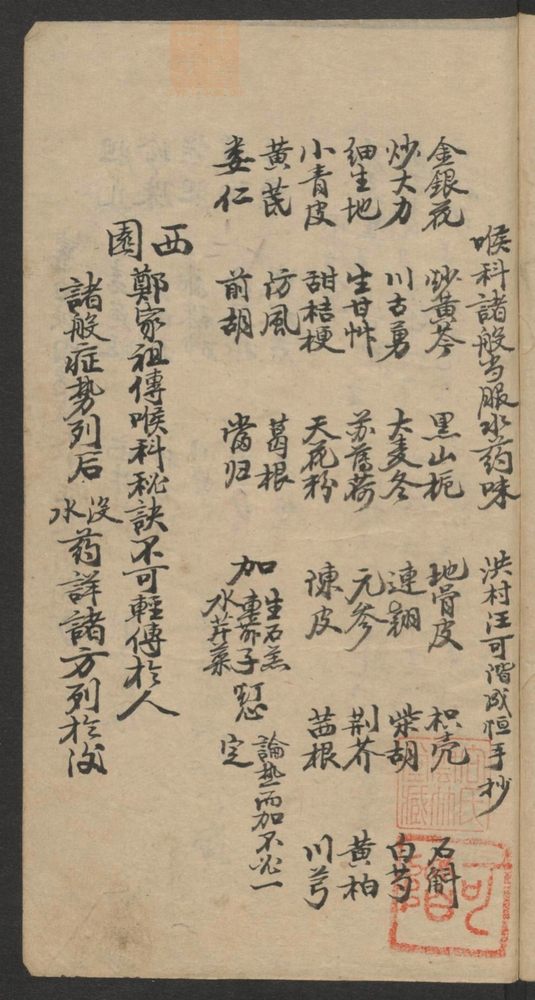 喉科諸般当服水药味 洪村汪可階成恒手抄
金銀花 炒黄芩 黑山栀 地骨皮 枳壳 石斛
炒大力 川古勇 大麦冬 連翹 柴胡 白芍
细生地 生甘艸 苏薄荷 元参 荆芥 黄柏
小青皮 甜桔梗 天花粉 陳皮 茜根 川芎
黄茋 防風 葛根
娄仁 前胡 當归
加 生石羔
水荸薺
定
論热而加不必一
西園
鄭家祖傳喉科秘訣不可輕傳於人
諸般症势列后 水 药詳諸方列於後
可階